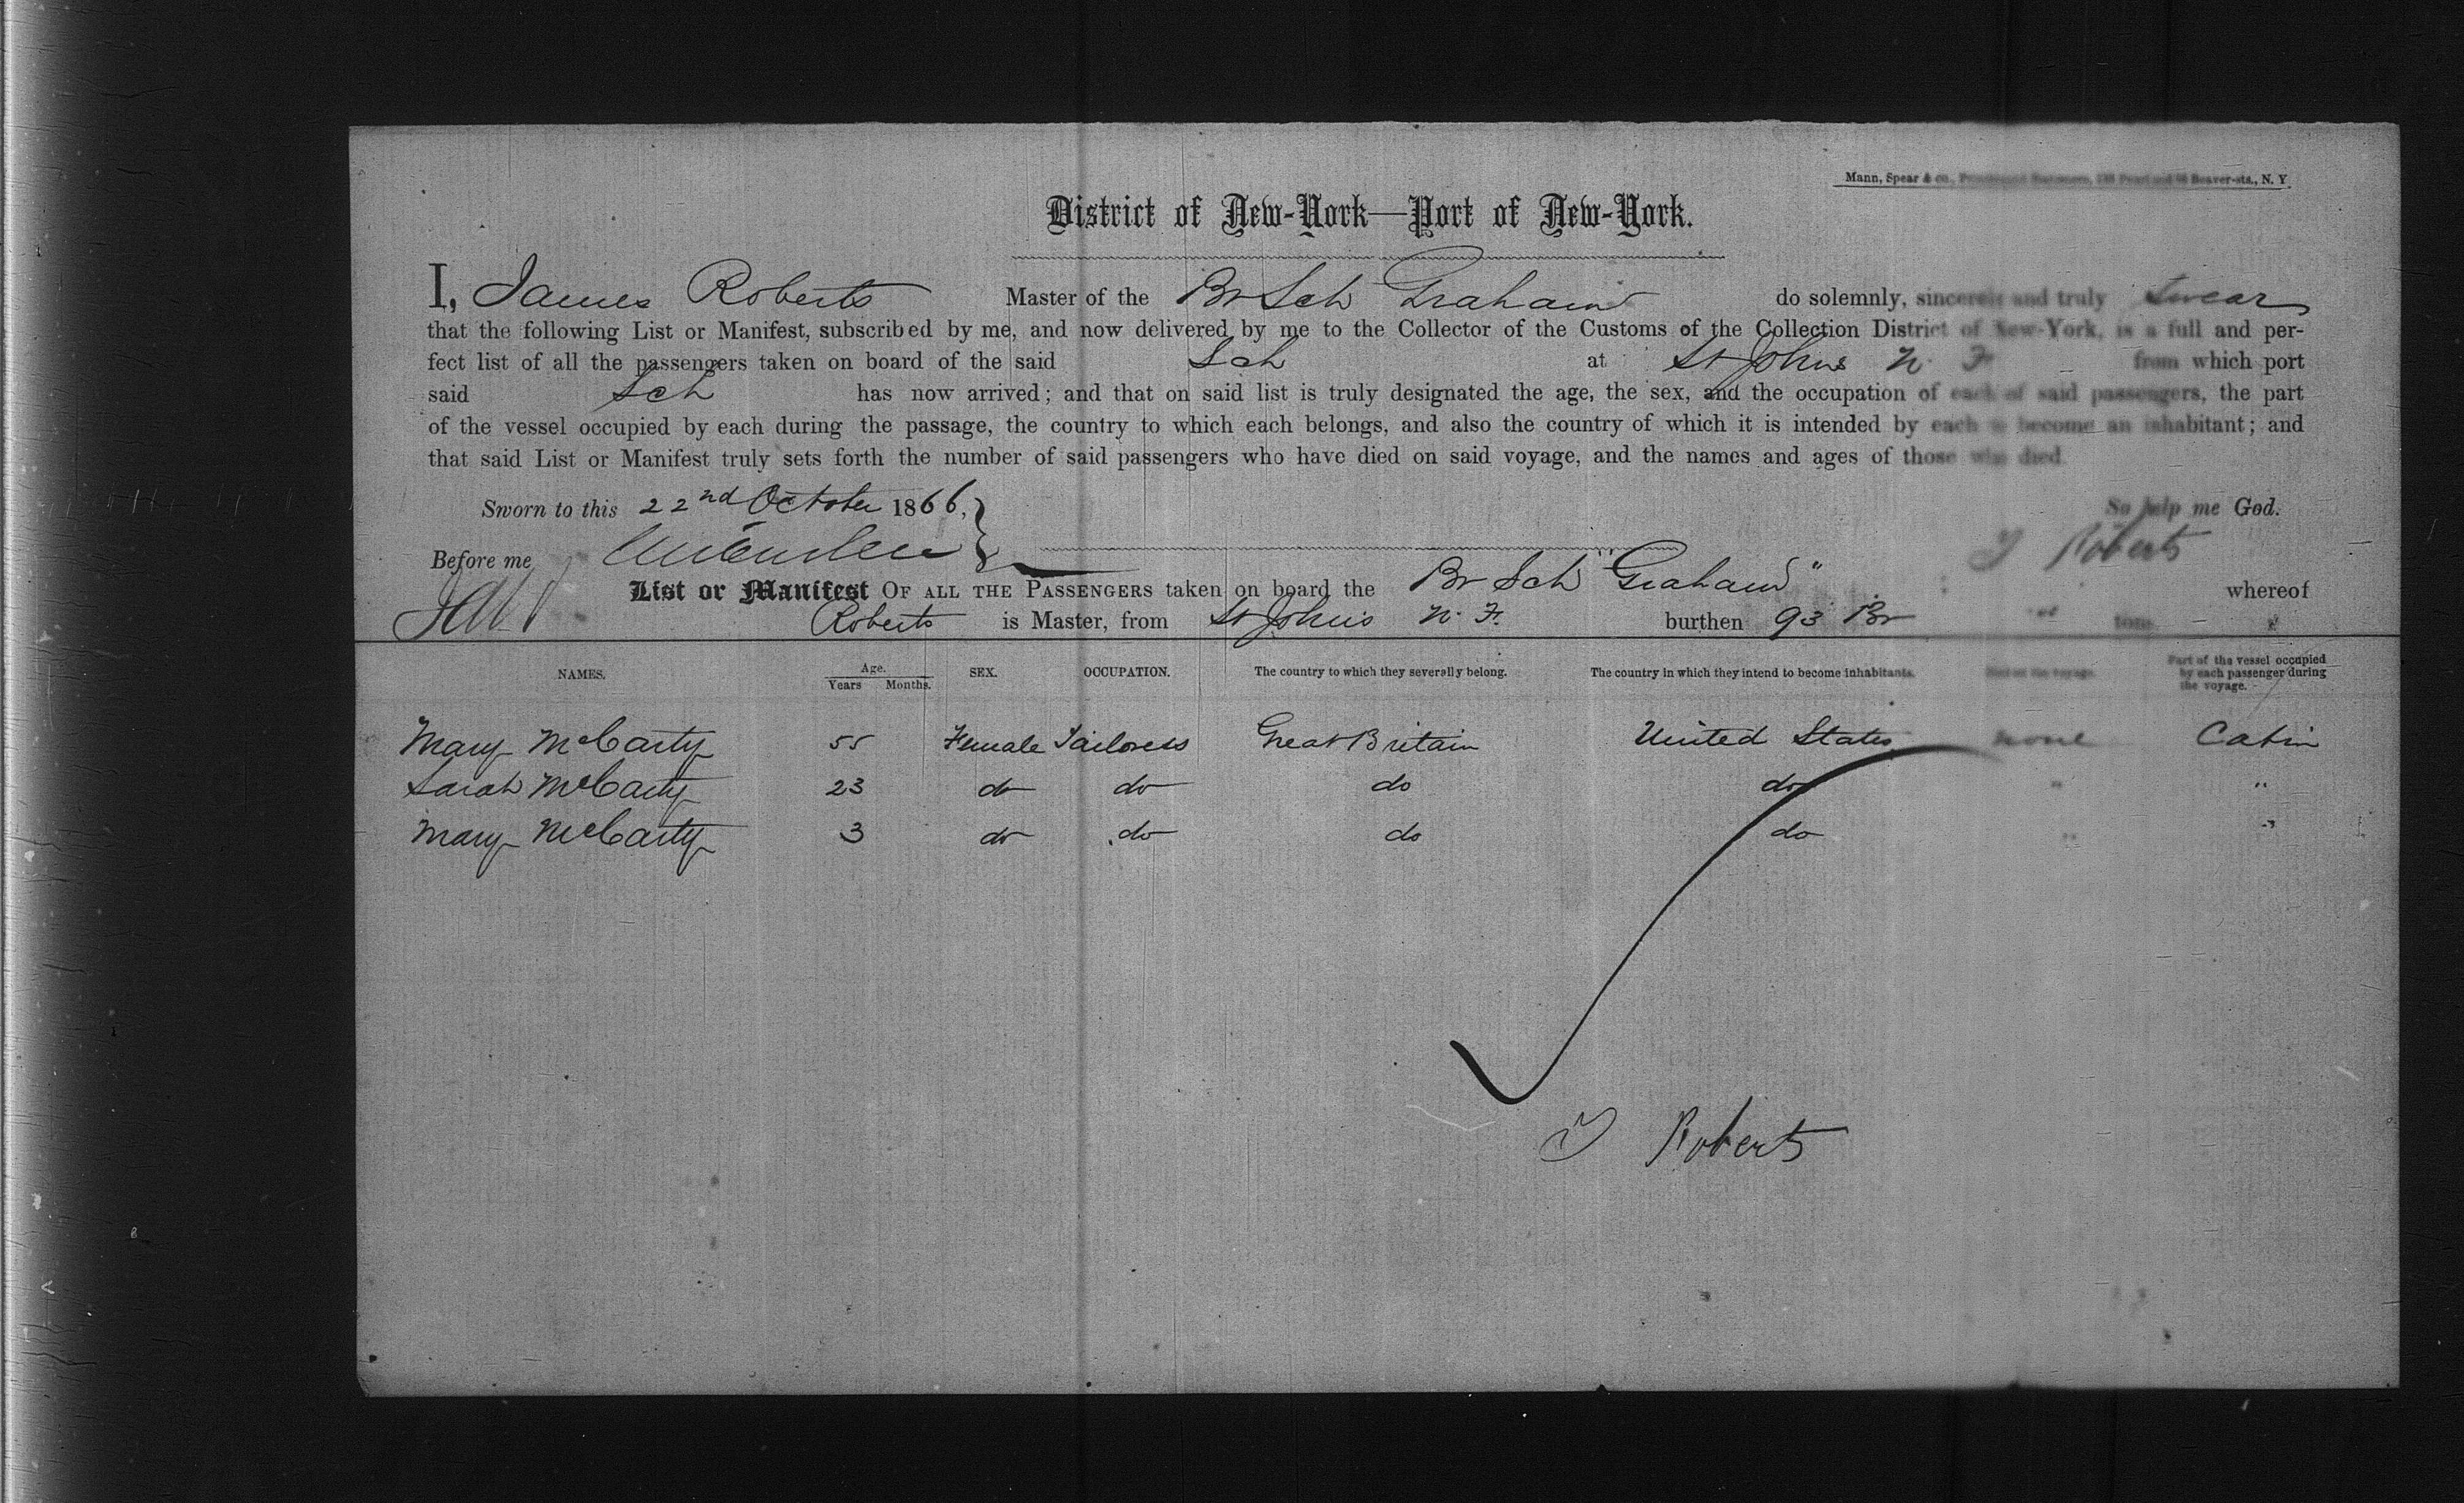 Mann, Spear & co., Beaver-sts., N. Y.
District of New-York—Port of New-York.
I, James Roberts Master of the Br Sch Graham do solemnly, sincerely and truly swear
that the following List or Manifest, subscribed by me, and now delivered by me to the Collector of the Customs of the Collection District of New-York, is a full and per-
fect list of all the passengers taken on board of the said Sch at St Johns N. F from which port
said Sch has now arrived; and that on said list is truly designated the age, the sex, and the occupation of each of said passengers, the part
of the vessel occupied by each during the passage, the country to which each belongs, and also the country of which it is intended by each to become an inhabitant; and
that said List or Manifest truly sets forth the number of said passengers who have died on said voyage, and the names and ages of those who died.
Sworn to this 22nd October 1866, So help me God.
Before me J Roberts
List or Manifest OF ALL THE PASSENGERS taken on board the Br Sch "Graham" whereof
Roberts is Master, from St John's N. F. burthen 93 Br tons
NAMES. Age. Years Months. SEX. OCCUPATION. The country to which they severally belong. The country in which they intend to become inhabitants. Died on the voyage. Part of the vessel occupied by each passenger during the voyage.
Mary McCarty 55 Female Tailoress Great Britain United States none Cabin
Sarah McCarty 23 do do do do " "
Mary McCarty 3 do do do do " "
J Roberts